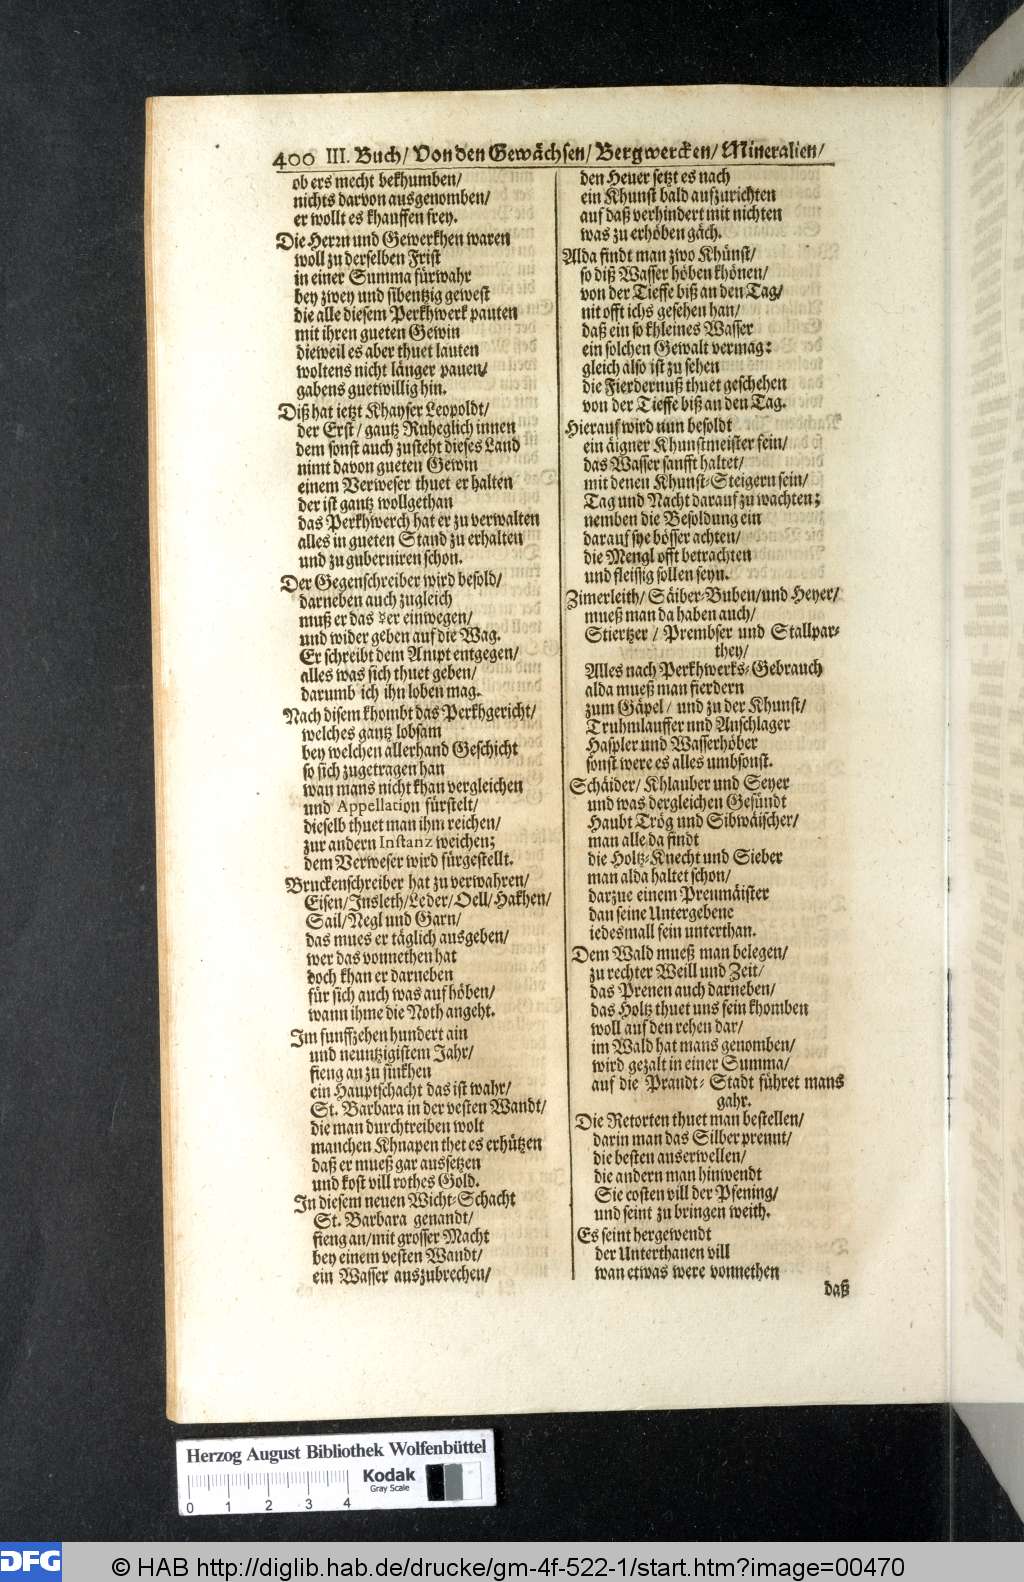 400 III. Buch/ Von den Gewächsen/ Bergwercken/ Mineralien/
ob ers mecht bekhumben/
nichts darvon ausgenomben/
er wollt es khauffen frey.
Die Herrn und Gewerkhen waren
woll zu derselben Frist
in einer Summa fürwahr
bey zwey und sibentzig gewest
die alle diesem Perkhwerk pauten
mit ihren gueten Gewin
dieweil es aber thuet lauten
woltens nicht länger pauen/
gabens guetwillig hin.
Diß hat ietzt Khayser Leopoldt/
der Erst/ gantz Ruheglich innen
dem sonst auch zusteht dieses Land
nimt davon gueten Gewin
einem Verweser thuet er halten
der ist gantz wollgethan
das Perkhwerch hat er zu verwalten
alles in gueten Stand zu erhalten
und zu guberniren schon.
Der Gegenschreiber wird besold/
darneben auch zugleich
muß er das Ker einwegen/
und wider geben auf die Wag.
Er schreibt dem Ampt entgegen/
alles was sich thuet geben/
darumb ich ihn loben mag.
Nach disem khombt das Perkhgericht/
welches gantz lobsam
bey welchen allerhand Geschicht
so sich zugetragen han
wan mans nicht khan vergleichen
und Appellation fürstelt/
dieselb thuet man ihm reichen/
zur andern Instanz weichen;
dem Verweser wird fürgestellt.
Bruckenschreiber hat zu verwahren/
Eisen/ Insleth/ Leder/ Oell/ Hakhen/
Sail/ Negl und Garn/
das mues er täglich ausgeben/
wer das vonnethen hat
doch khan er darneben
für sich auch was auf höben/
wann ihme die Noth angeht.
Im funffzehen hundert ain
und neuntzigistem Jahr/
fieng an zu sinkhen
ein Hauptschacht das ist wahr/
St. Barbara in der vesten Wandt/
die man durchtreiben wolt
manchen Khnapen thet es erhützen
daß er mueß gar aussetzen
und kost vill rothes Gold.
In diesem neuen Wicht-Schacht
St. Barbara genandt/
fieng an/ mit grosser Macht
bey einem vesten Wandt/
ein Wasser auszubrechen/
den Heuer setzt es nach
ein Khunst bald aufzurichten
auf daß verhindert mit nichten
was zu erhöben gäch.
Alda findt man zwo Khünst/
so diß Wasser höben khönen/
von der Tieffe biß an den Tag/
nit offt ichs gesehen han/
daß ein so khleines Wasser
ein solchen Gewalt vermag:
gleich also ist zu sehen
die Fierdernuß thuet geschehen
von der Tieffe biß an den Tag.
Hierauf wird nun besoldt
ein äigner Khunstmeister fein/
das Wasser sanfft haltet/
mit denen Khunst-Steigern sein/
Tag und Nacht darauf zu wachten;
nemben die Besoldung ein
darauf sye bösser achten/
die Mengl offt betrachten
und fleissig sollen seyn.
Zimerleith/ Säiber-Buben/ und Heyer/
mueß man da haben auch/
Stiertzer/ Prembser und Stallpar-
they/
Alles nach Perkhwerks-Gebrauch
alda mueß man fierdern
zum Gäpel/ und zu der Khunst/
Truhmlauffer und Anschlager
Haspler und Wasserhöber
sonst were es alles umbsonst.
Schäider/ Khlauber und Seyer
und was dergleichen Gesündt
Haubt Trög und Sibwäischer/
man alle da findt
die Holtz-Knecht und Sieber
man alda haltet schon/
darzue einem Preumäister
dan seine Untergebene
iedesmall sein unterthan.
Dem Wald mueß man belegen/
zu rechter Weill und Zeit/
das Prenen auch darneben/
das Holtz thuet uns fein khomben
woll auf den rehen dar/
im Wald hat mans genomben/
wird gezalt in einer Summa/
auf die Prandt-Stadt führet mans
gahr.
Die Retorten thuet man bestellen/
darin man das Silber prennt/
die besten auserwellen/
die andern man hinwendt
Sie costen vill der Pfening/
und seint zu bringen weith.
Es seint hergewendt
der Unterthanen vill
wan etwas were vonnethen
daß
Herzog August Bibliothek Wolfenbüttel
Kodak
Gray Scale
0 1 2 3 4
DFG
© HAB http://diglib.hab.de/drucke/gm-4f-522-1/start.htm?image=00470